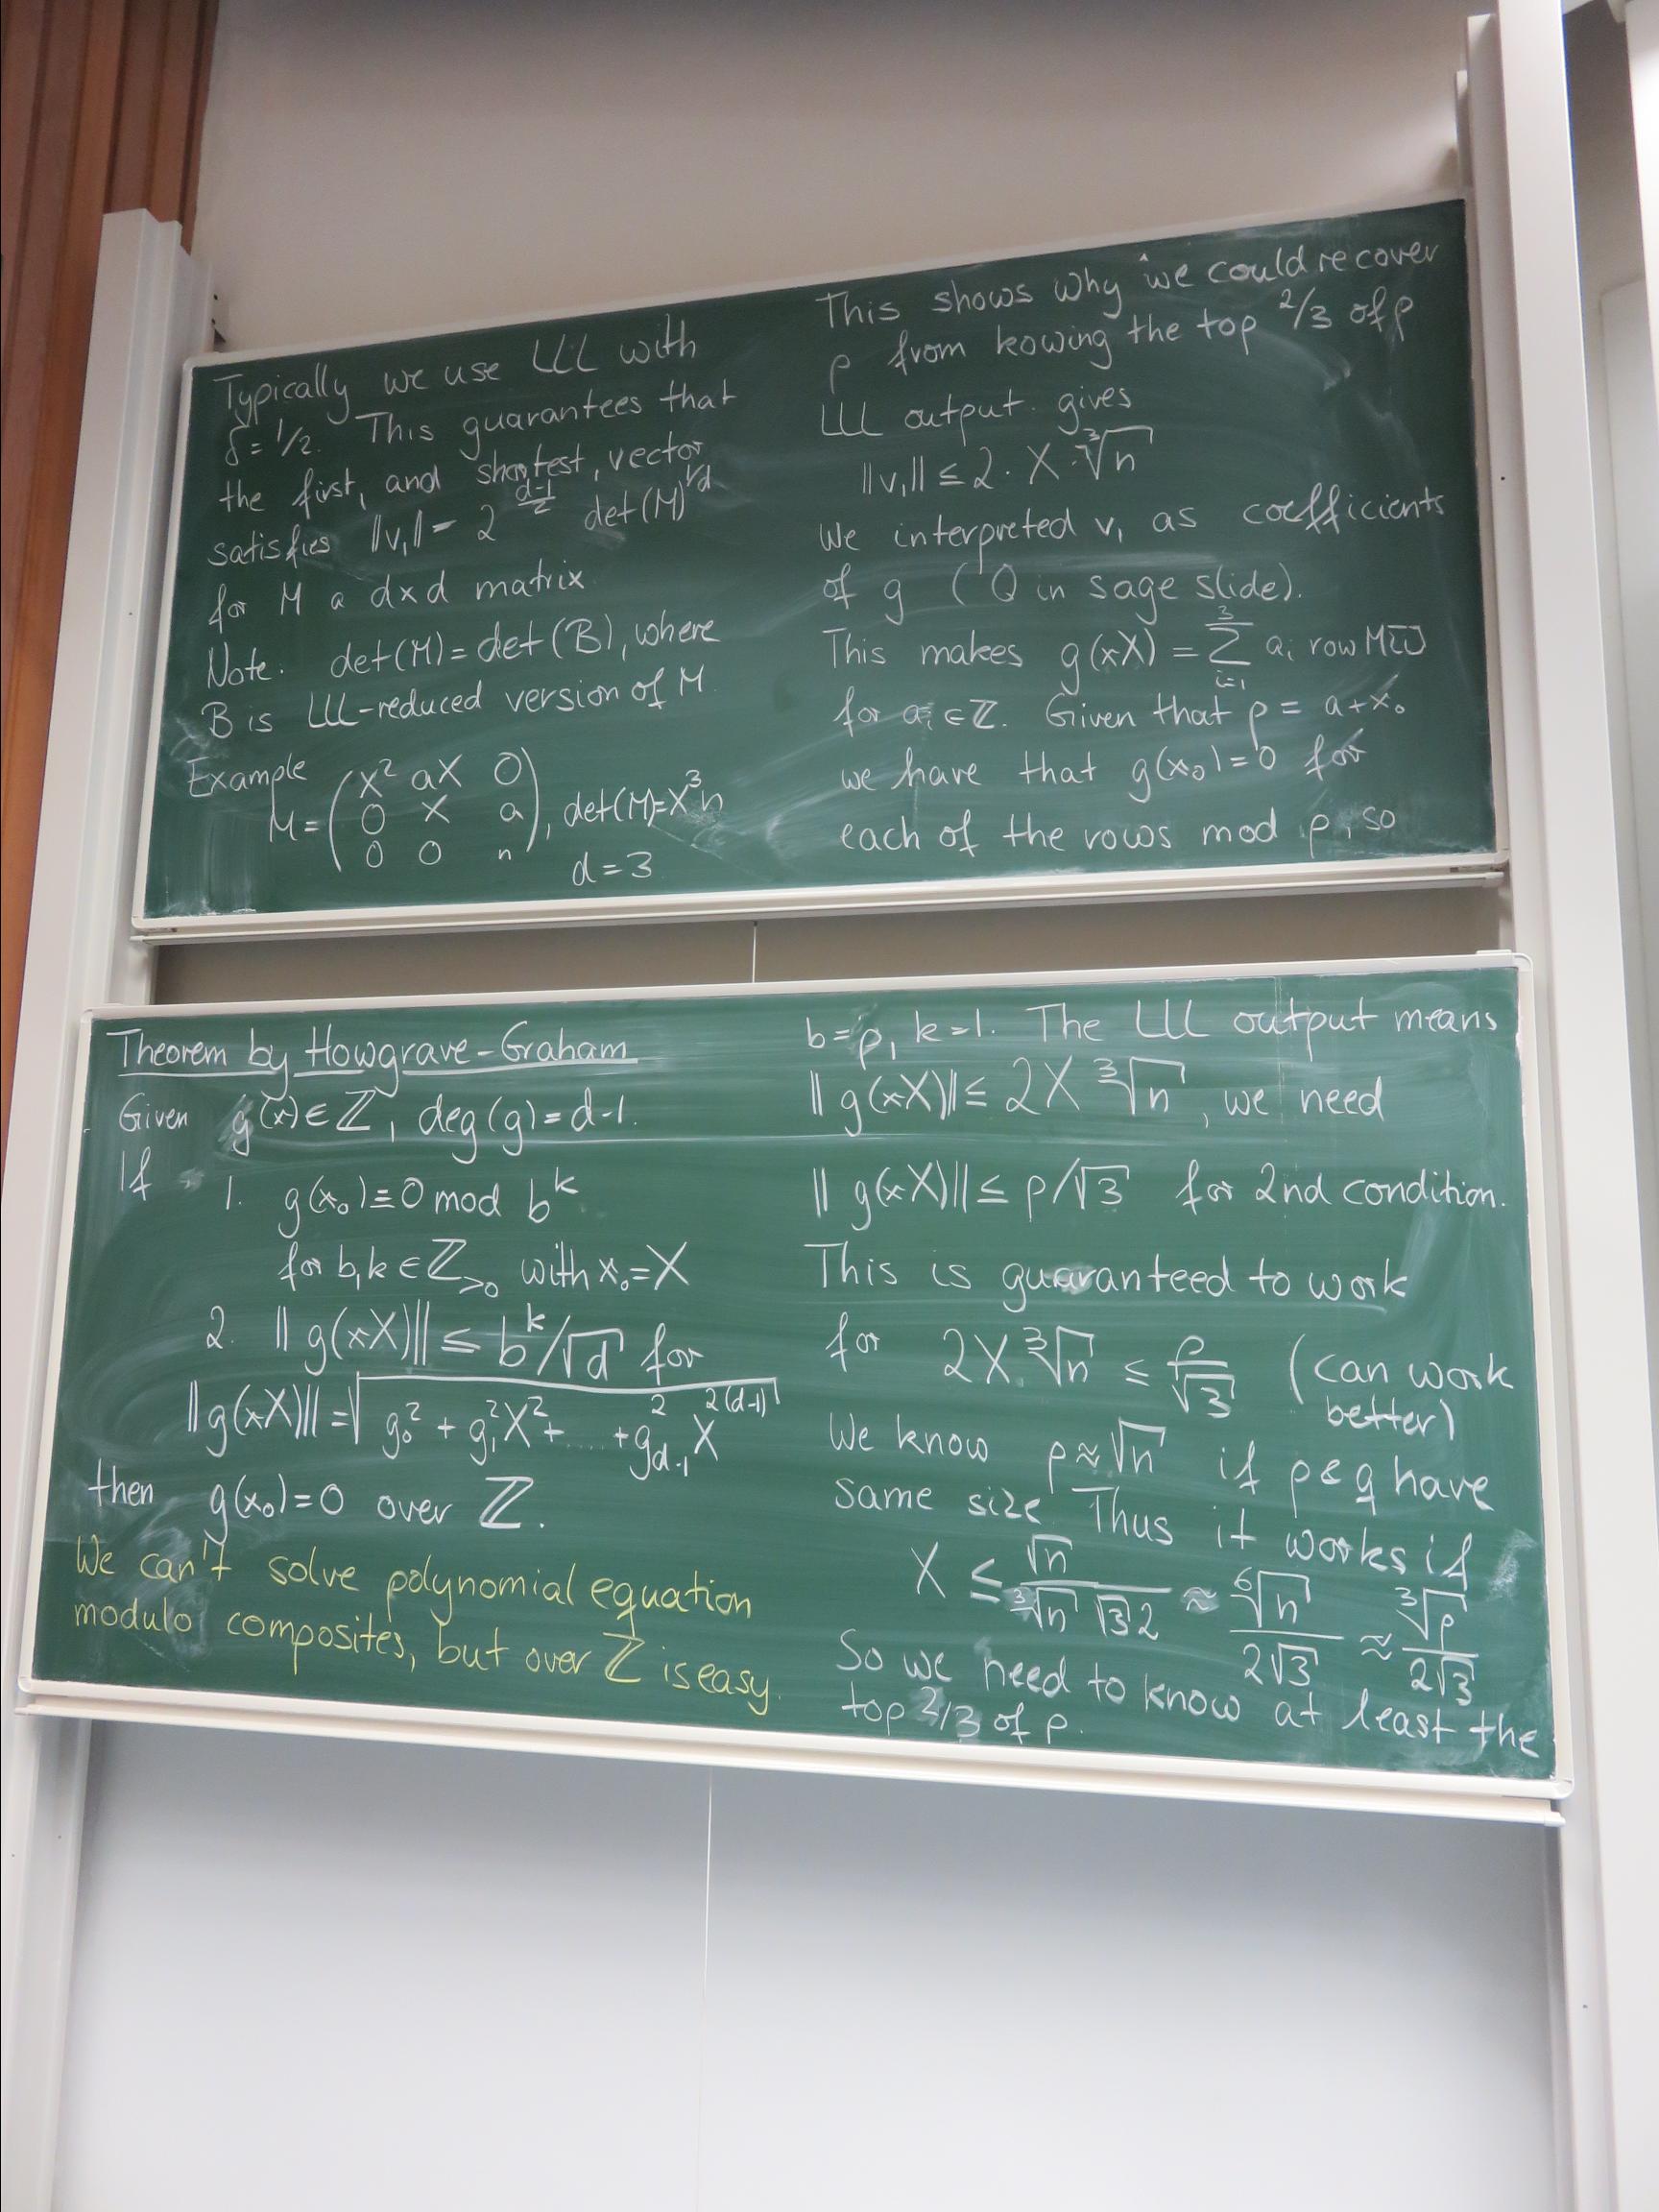 Typically we use LLL with
δ = 1/2. This guarantees that
the first, and shortest, vector
satisfies ||v₁|| = 2^((d-1)/2) det(M)^(1/d)
for M a d×d matrix.
Note. det(M) = det(B), where
B is LLL-reduced version of M.
Example
M = (X² aX 0
0 X a
0 0 n), det(M)=X³n
d = 3
This shows why we could recover
p from kowing the top 2/3 of p
LLL output gives
||v₁|| ≤ 2 · X · ∛n
We interpreted v₁ as coefficients
of g (Q in sage slide).
This makes g(xX) = Σ_{i=1}^{3} a_i row M[i]
for a_i ∈ ℤ. Given that p = a+x₀
we have that g(x₀)=0 for
each of the rows mod p, so
Theorem by Howgrave-Graham
Given g(x) ∈ ℤ, deg(g) = d-1.
If
1. g(x₀) ≡ 0 mod b^k
for b,k ∈ ℤ_{>0} with x₀=X
2. ||g(xX)|| ≤ b^k/√d for
||g(xX)|| = √(g₀² + g₁²X² + ... + g_{d-1}² X^{2(d-1)})
then g(x₀)=0 over ℤ.
We can't solve polynomial equation
modulo composites, but over ℤ is easy.
b=p, k=1. The LLL output means
||g(xX)|| ≤ 2X ∛n, we need
||g(xX)|| ≤ p/√3 for 2nd condition.
This is guaranteed to work
for 2X ∛n ≤ p/√3 (can work
better)
We know p≈√n if p & q have
same size. Thus it works if
X ≤ √n/(∛n √3 2) ≈ ⁶√n/(2√3) ≈ ∛p/(2√3)
So we need to know at least the
top 2/3 of p.